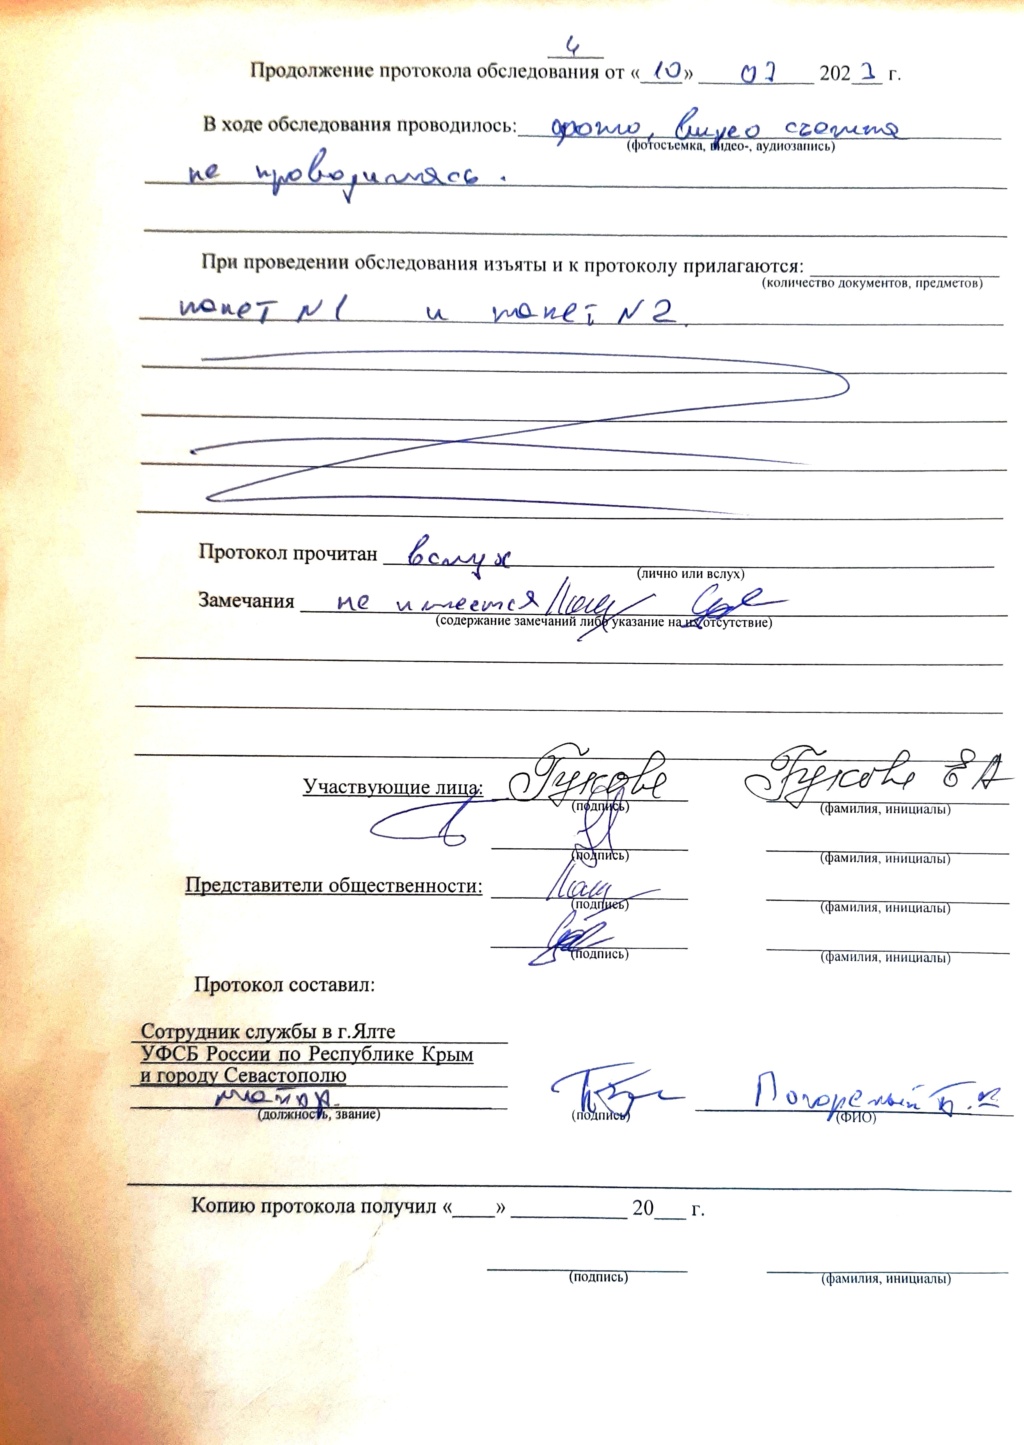 4
Продолжение протокола обследования от «10» 07 2023 г.
В ходе обследования проводилось: фото, видео съемка
(фотосъемка, видео-, аудиозапись)
не проводилась.
При проведении обследования изъяты и к протоколу прилагаются:
(количество документов, предметов)
пакет N1 и пакет N2.
Протокол прочитан вслух
(лично или вслух)
Замечания не имеется
(содержание замечаний либо указание на их отсутствие)
Участвующие лица:
(подпись) (фамилия, инициалы)
(подпись) (фамилия, инициалы)
Представители общественности:
(подпись) (фамилия, инициалы)
(подпись) (фамилия, инициалы)
Протокол составил:
Сотрудник службы в г.Ялте
УФСБ России по Республике Крым
и городу Севастополю
майор.
(должность, звание) (подпись) (ФИО)
Копию протокола получил «____» ___________ 20___ г.
(подпись) (фамилия, инициалы)